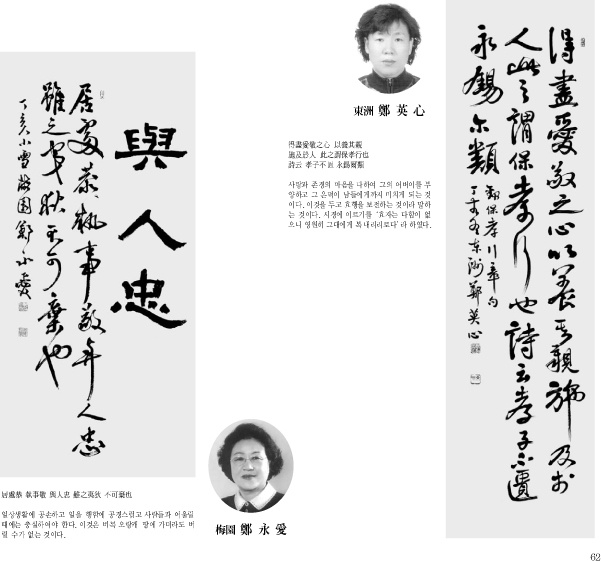 與人忠
居處恭執事敬與人忠
雖之夷狄不可棄也
丁亥小雪 梅園 鄭永愛
居處恭 執事敬 與人忠 雖之夷狄 不可棄也
일상생활에 공손하고 일을 행함에 공경스럽고 사람들과 어울릴
때에는 충실하여야 한다. 이것은 비록 오랑캐 땅에 가더라도 버
릴 수가 없는 것이다.
梅園 鄭 永 愛
東洲 鄭 英 心
得盡愛敬之心 以養其親
施及於人 此之謂保孝行也
詩云 孝子不匱 永錫爾類
사랑과 존경의 마음을 다하여 그의 어버이를 부
양하고 그 은덕이 남들에게까지 미치게 되는 것
이다. 이것을 두고 효행을 보전하는 것이라 말하
는 것이다. 시경에 이르기를 '효자는 다함이 없
으니 영원히 그대에게 복 내리리로다' 라 하였다.
得盡愛敬之心以養其親施及於
人此之謂保孝行也詩云孝子不匱
永錫爾類
保孝行章句
丁亥冬 東洲 鄭英心
62